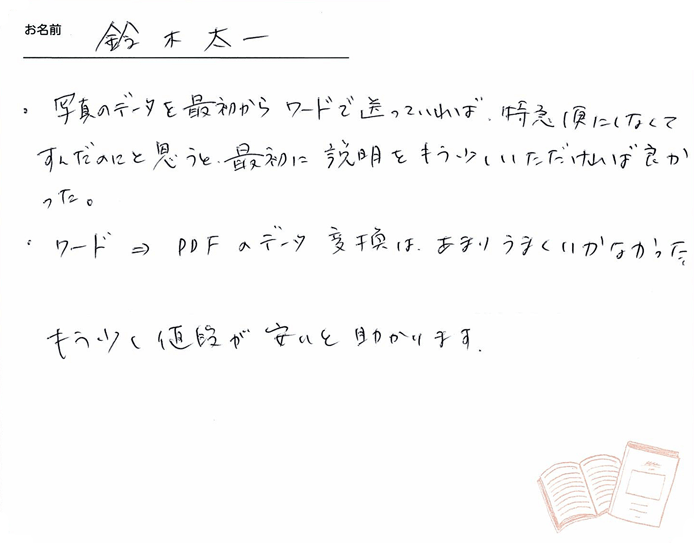 お名前 鈴木太一
・写真のデータを最初からワードで送っていれば、特急便にしなくて
すんだのにと思うと、最初に説明をもう少しいただければ良か
った。
・ワード ⇒ PDFのデータ変換は、あまりうまくいかなかった
もう少し値段が安いと助かります。